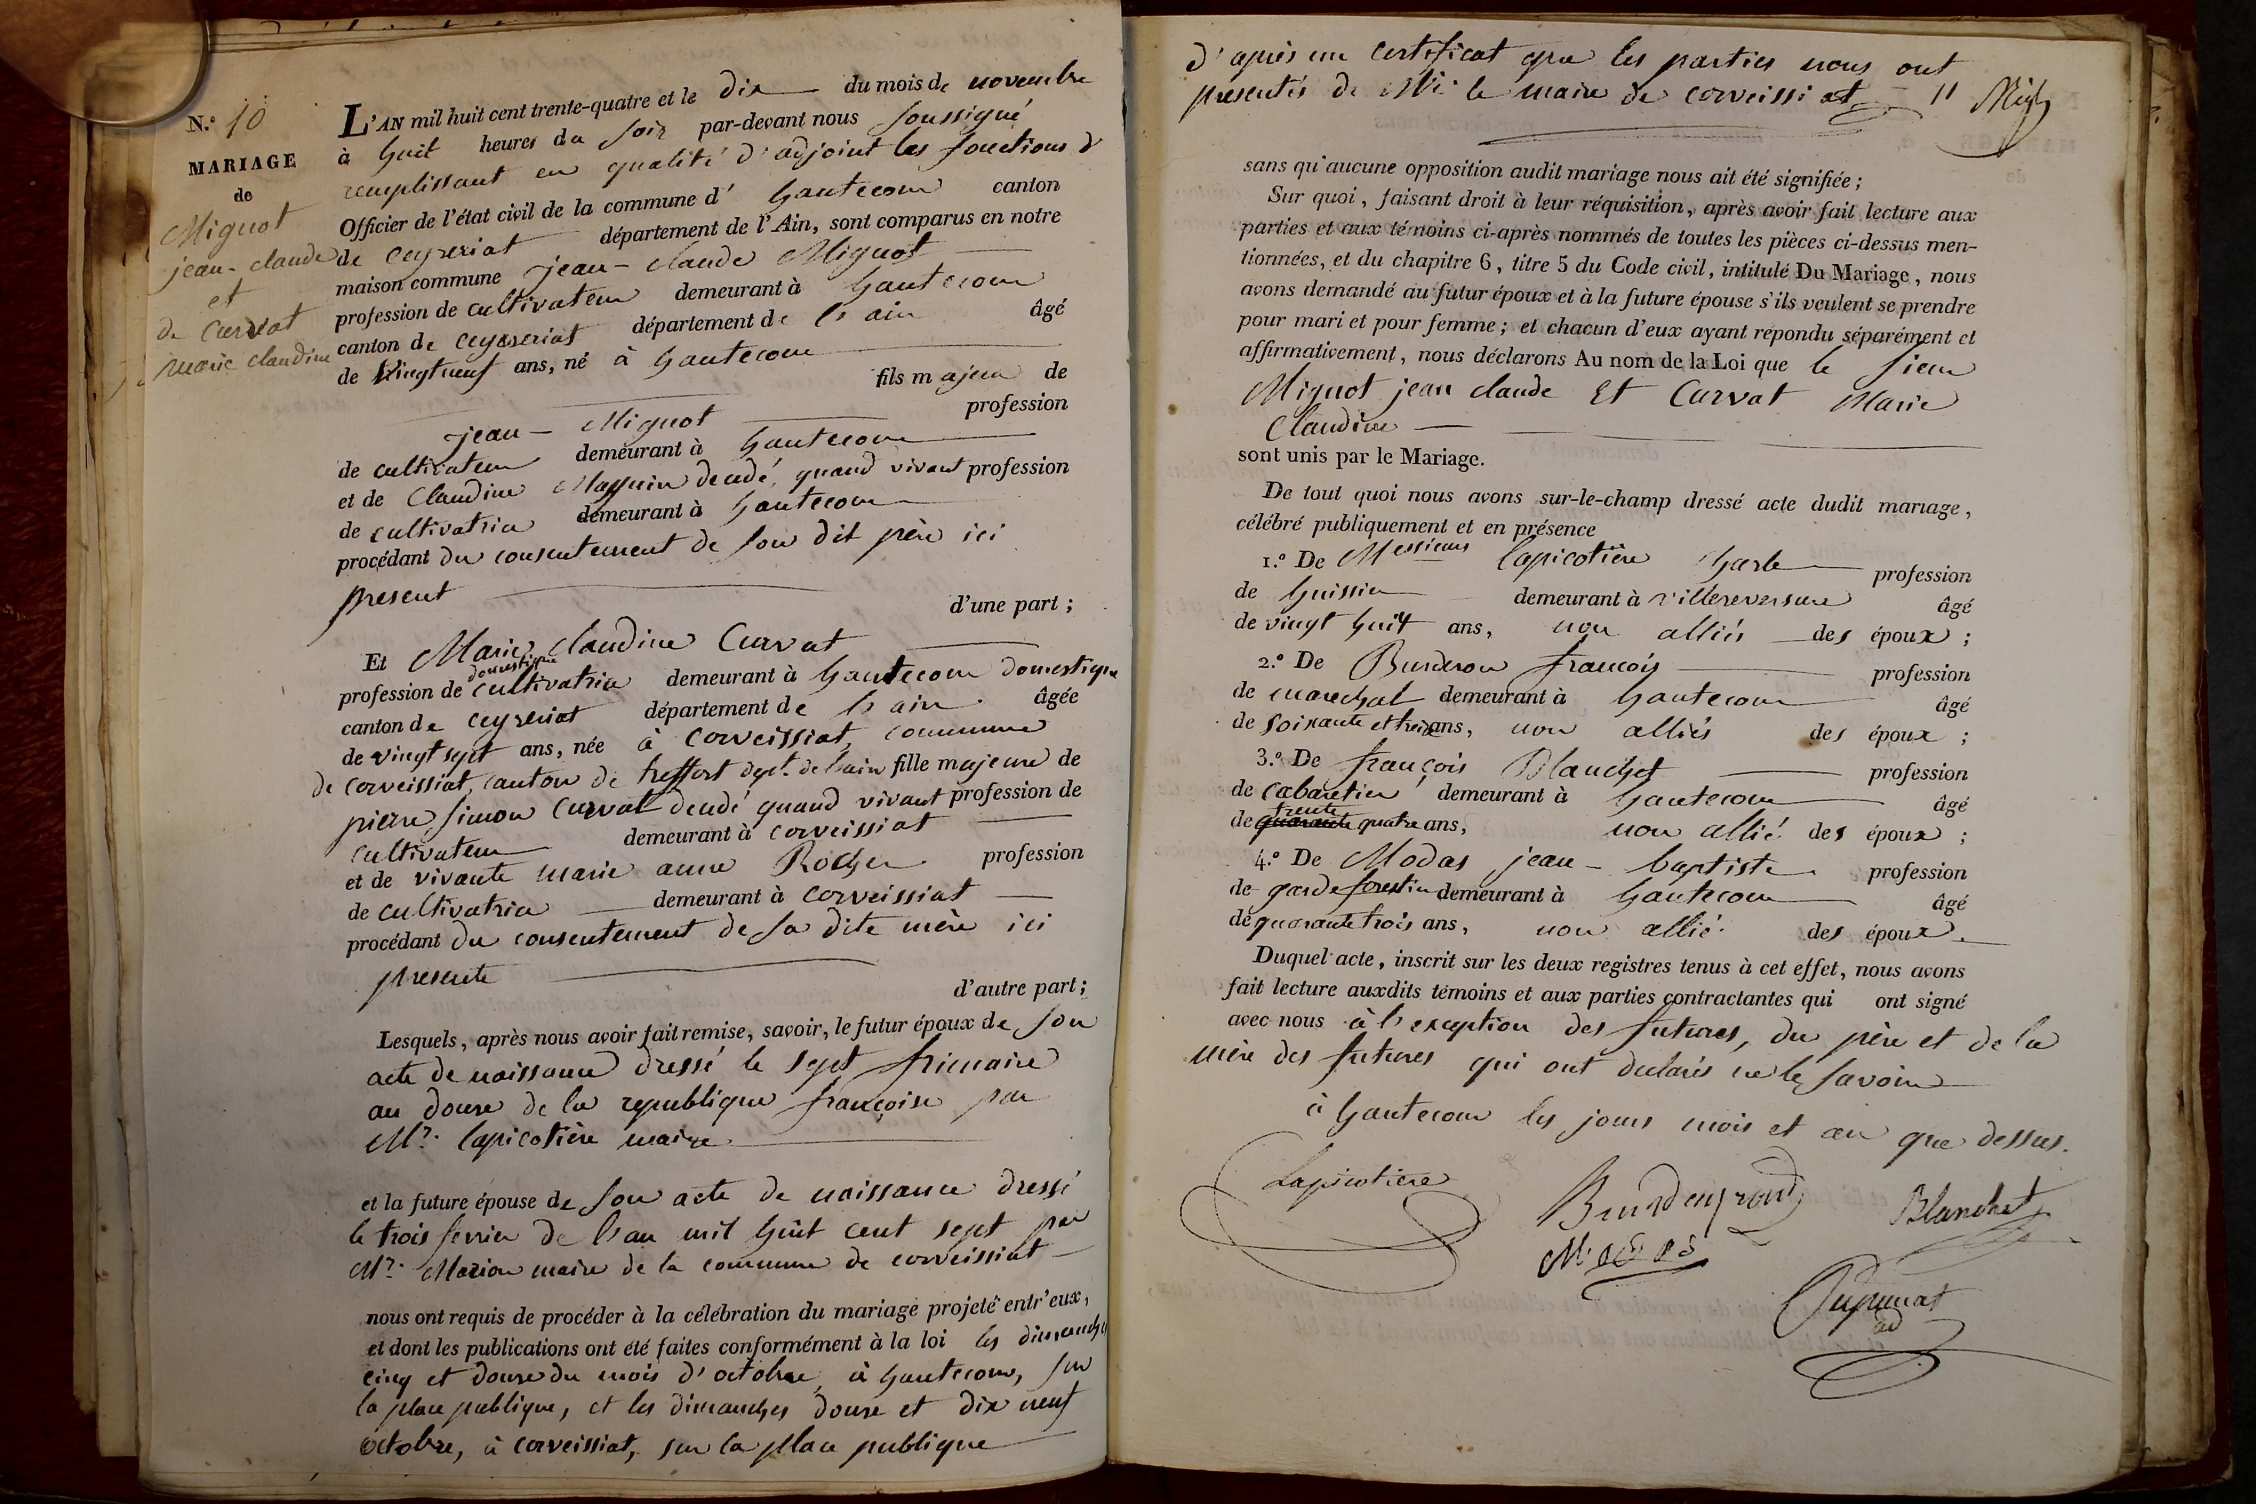 N.° 10
MARIAGE
de
Mignot
jean-claude
et
de Curvat
marie claudine
L'AN mil huit cent trente-quatre et le dix du mois de novembre
à huit heures du soir par-devant nous soussigné
remplissant en qualité d'adjoint les fonctions d'
Officier de l'état civil de la commune d' hautecour canton
de ceyzeriat département de l'Ain, sont comparus en notre
maison commune jean-claude Mignot
profession de cultivateur demeurant à hautecour
canton de ceyzeriat département de l'ain âgé
de vingt neuf ans, né à hautecour
fils majeur de
jean-Mignot profession
de cultivateur demeurant à hautecour
et de Claudine decedé, quand vivant profession
de cultivatrice demeurant à hautecour
procédant du consentement de son dit père ici
present
d'une part ;
Et Marie claudine Curvat
domestique
profession de cultivatrice demeurant à hautecour domestique
canton de ceyzeriat département de l'ain âgée
de vingt sept ans, née à corveissiat, commune
de corveissiat, canton de treffort dept. de l'ain fille majeure de
pierre simon curvat decedé quand vivant profession de
cultivateur demeurant à corveissiat
et de vivante marie anne Rocher profession
de cultivatrice demeurant à corveissiat
procédant du consentement de sa dite mère ici
presente
d'autre part ;
Lesquels, après nous avoir fait remise, savoir, le futur époux de son
acte de naissance dressé le sept frimaire
an douze de la republique françoise par
Mr. lapicotière maire
et la future épouse de son acte de naissance dressé
le trois fevrier de l'an mil huit cent sept par
Mr. Marion maire de la commune de corveissiat
nous ont requis de procéder à la célébration du mariage projeté entr'eux,
et dont les publications ont été faites conformément à la loi les dimanches
cinq et douze du mois d'octobre, à hautecour, sur
la place publique, et les dimanches douze et dix neuf
octobre, à corveissiat, sur la place publique
d'après un certificat que les parties nous ont
presentés de le maire de corveissiat
sans qu'aucune opposition audit mariage nous ait été signifiée ;
Sur quoi, faisant droit à leur réquisition, après avoir fait lecture aux
parties et aux témoins ci-après nommés de toutes les pièces ci-dessus men-
tionnées, et du chapitre 6, titre 5 du Code civil, intitulé Du Mariage, nous
avons demandé au futur époux et à la future épouse s'ils veulent se prendre
pour mari et pour femme ; et chacun d'eux ayant répondu séparément et
affirmativement, nous déclarons Au nom de la Loi que le sieur
Mignot jean claude Et Curvat Marie
Claudine
sont unis par le Mariage.
De tout quoi nous avons sur-le-champ dressé acte dudit mariage,
célébré publiquement et en présence
1.° De Messieurs lapicotière profession
de huissier demeurant à villereversure âgé
de vingt huit ans, non alliés des époux ;
2.° De Burderon françois profession
de marechal demeurant à hautecour âgé
de soixante et treize ans, non alliés des époux ;
3.° De françois Blanchet profession
de cabaretier demeurant à hautecour âgé
trente
de quarante quatre ans, non allié des époux ;
4.° De Modas jean-baptiste profession
de garde forestier demeurant à hautecour âgé
de quarante trois ans, non allié des époux.
Duquel acte, inscrit sur les deux registres tenus à cet effet, nous avons
fait lecture auxdits témoins et aux parties contractantes qui ont signé
avec nous à l'exception des futures, du père et de la
mère des futures qui ont declarés ne le savoir
à hautecour les jours mois et an que dessus.
Lapicotiere
Blanchet